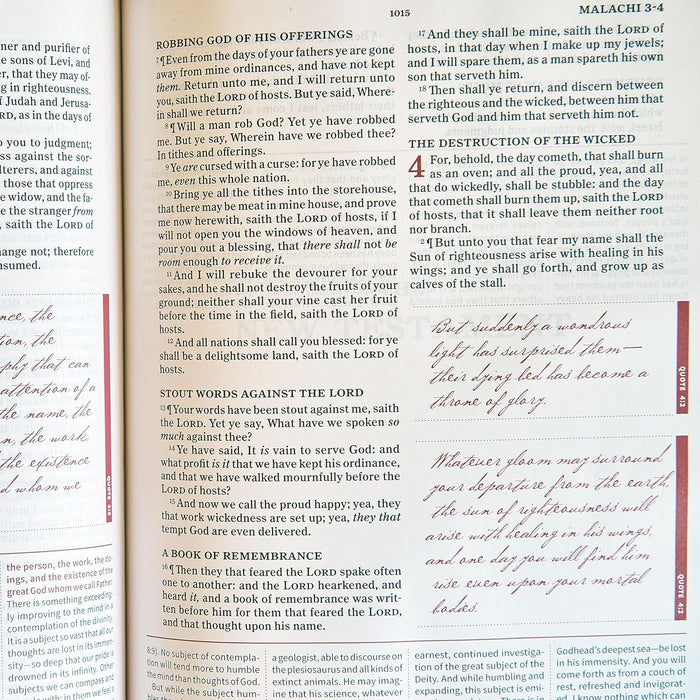 1015
MALACHI 3-4
ner and purifier of
e sons of Levi, and
er, that they may of-
ng in righteousness.
f Judah and Jerusa-
RD, as in the days of
o you to judgment;
ess against the sor-
lterers, and against
those that oppress
e widow, and the fa-
e the stranger from
, saith the LORD of
hange not; therefore
nsumed.
nce, the
tion, the
phy that can
attention of a
the name, the
n, the work,
the existence
d whom we
QUOTE 3:6
the person, the work, the do-
ings, and the existence of the
great God whom we call Father.
There is something exceeding-
ly improving to the mind in a
contemplation of the divinity.
It is a subject so vast that all our
thoughts are lost in its immen-
sity—so deep that our pride is
drowned in its infinity. Other
subjects we can compass and
ROBBING GOD OF HIS OFFERINGS
7 ¶Even from the days of your fathers ye are gone
away from mine ordinances, and have not kept
them. Return unto me, and I will return unto
you, saith the LORD of hosts. But ye said, Where-
in shall we return?
8 ¶Will a man rob God? Yet ye have robbed
me. But ye say, Wherein have we robbed thee?
In tithes and offerings.
9 Ye are cursed with a curse: for ye have robbed
me, even this whole nation.
10 Bring ye all the tithes into the storehouse,
that there may be meat in mine house, and prove
me now herewith, saith the LORD of hosts, if I
will not open you the windows of heaven, and
pour you out a blessing, that there shall not be
room enough to receive it.
11 And I will rebuke the devourer for your
sakes, and he shall not destroy the fruits of your
ground; neither shall your vine cast her fruit
before the time in the field, saith the LORD of
hosts.
12 And all nations shall call you blessed: for ye
shall be a delightsome land, saith the LORD of
hosts.
STOUT WORDS AGAINST THE LORD
13 ¶Your words have been stout against me, saith
the LORD. Yet ye say, What have we spoken so
much against thee?
14 Ye have said, It is vain to serve God: and
what profit is it that we have kept his ordinance,
and that we have walked mournfully before the
LORD of hosts?
15 And now we call the proud happy; yea, they
that work wickedness are set up; yea, they that
tempt God are even delivered.
A BOOK OF REMEMBRANCE
16 ¶Then they that feared the LORD spake often
one to another: and the LORD hearkened, and
heard it, and a book of remembrance was writ-
ten before him for them that feared the LORD,
and that thought upon his name.
17 And they shall be mine, saith the LORD of
hosts, in that day when I make up my jewels;
and I will spare them, as a man spareth his own
son that serveth him.
18 Then shall ye return, and discern between
the righteous and the wicked, between him that
serveth God and him that serveth him not.
THE DESTRUCTION OF THE WICKED
4 For, behold, the day cometh, that shall burn
as an oven; and all the proud, yea, and all
that do wickedly, shall be stubble: and the day
that cometh shall burn them up, saith the LORD
of hosts, that it shall leave them neither root
nor branch.
2 ¶But unto you that fear my name shall the
Sun of righteousness arise with healing in his
wings; and ye shall go forth, and grow up as
calves of the stall.
But suddenly a wondrous
light has surprised them—
their dying bed has become a
throne of glory.
QUOTE 4:2
Whatever gloom may surround
your departure from the earth,
the sun of righteousness will
arise with healing in his wings,
and one day you will find him
rise even upon your mortal
bodies.
QUOTE 4:2
8:9). No subject of contempla-
tion will tend more to humble
the mind than thoughts of God.
But while the subject hum-
a geologist, able to discourse on
the plesiosaurus and all kinds of
extinct animals. He may imag-
ine that his science, whatever
earnest, continued investiga-
tion of the great subject of the
Deity. And while humbling and
expanding, this subject is emi-
Godhead's deepest sea—be lost
in his immensity. And you will
come forth as from a couch of
rest, refreshed and invigorat-
ed. I know nothing which can